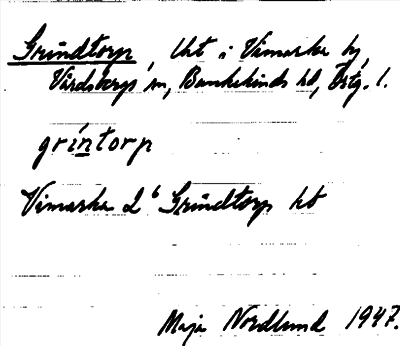 Grindtorp, lht i Vimarka by,
Vårdsbergs sn, Bankekinds hd, Östg. l.
gríntorp
Vimarka 2⁶ Grindtorp ht
Maja Nordlund 1947.